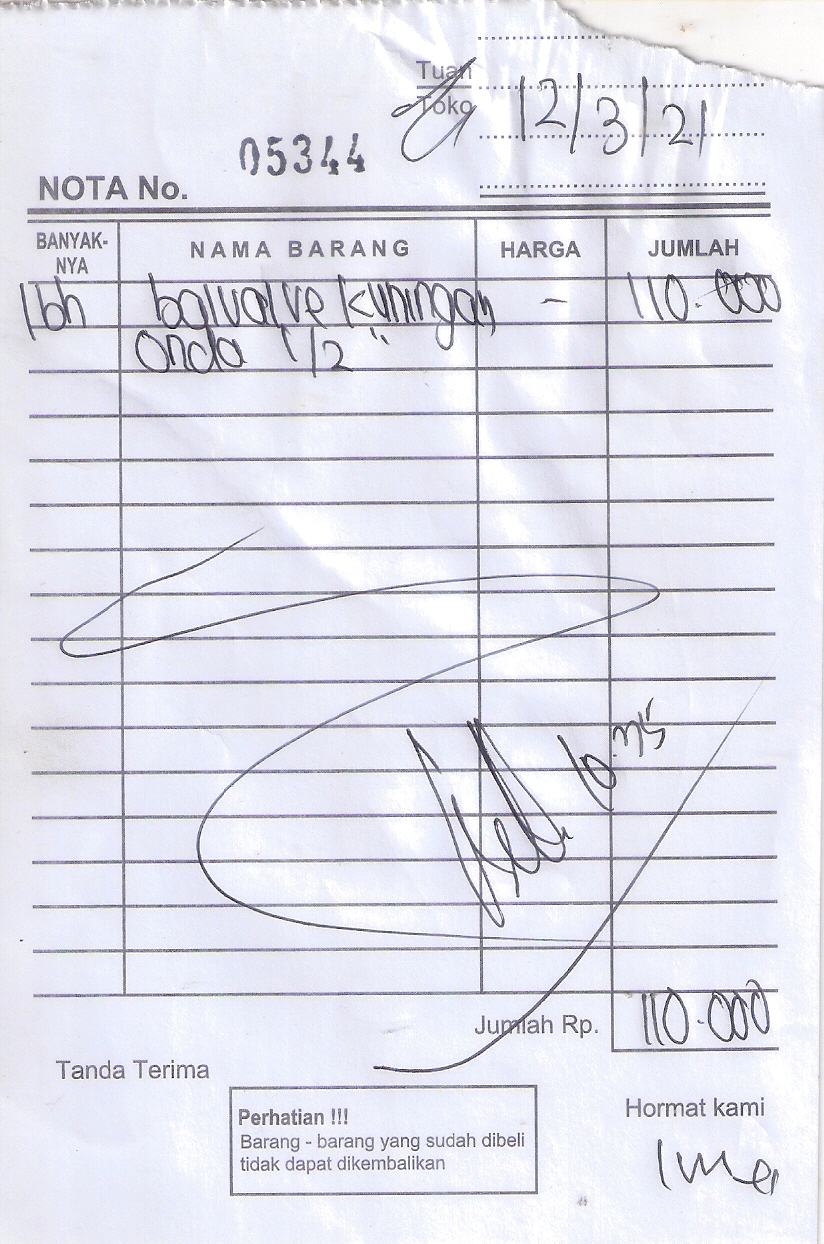 Tuan
Toko
12/3/21
NOTA No. 05344
BANYAK-NYA NAMA BARANG HARGA JUMLAH
1bh balvalve kuningan - 110.000
onda 1/2"
Jumlah Rp. 110.000
Tanda Terima
Hormat kami
Perhatian !!!
Barang - barang yang sudah dibeli
tidak dapat dikembalikan